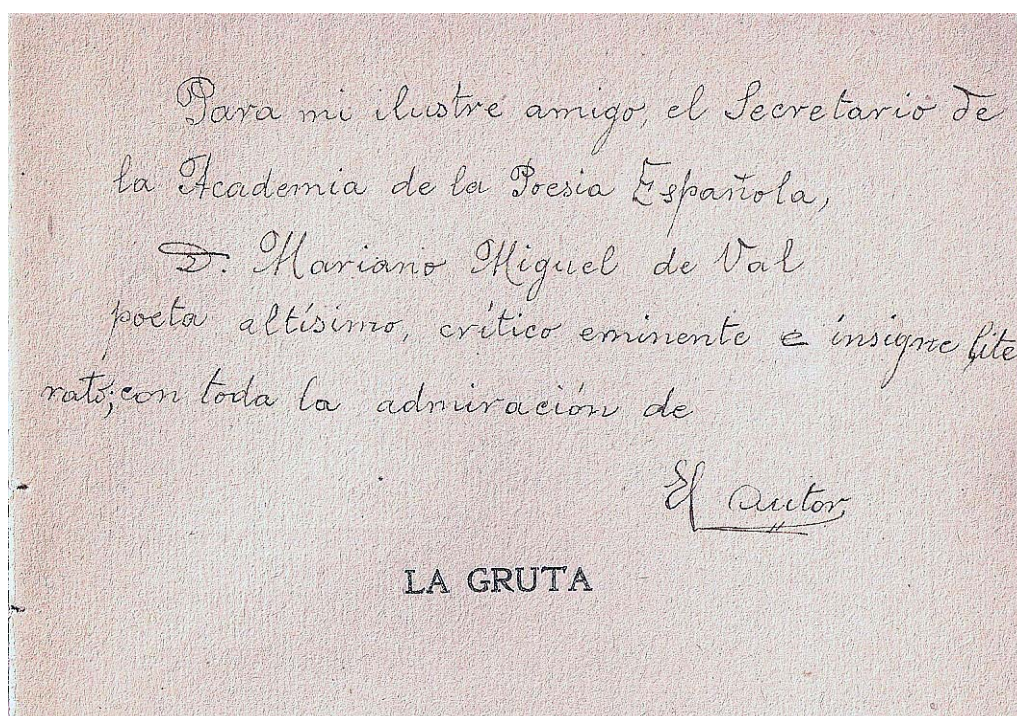 Para mi ilustre amigo, el Secretario de
la Academia de la Poesia Española,
D. Mariano Miguel de Val
poeta altísimo, crítico eminente e insigne lite
rato; con toda la admiración de
El autor
LA GRUTA